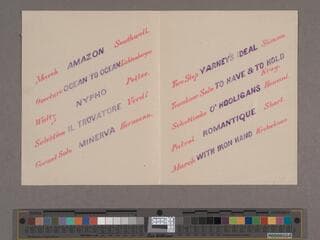 March AMAZON Southwell.
Overture OCEAN TO OCEAN
Waltz NYPHO Pettee.
Selection IL TROVATORE Verdi
Cornet Solo MINERVA Hermann.
Two Step VARNEY'S IDEAL Simons
Trombone Solo TO HAVE & TO HOLD
Schottische O'HOOLIGANS
Patrol ROMANTIQUE Short.
March WITH IRON HAND